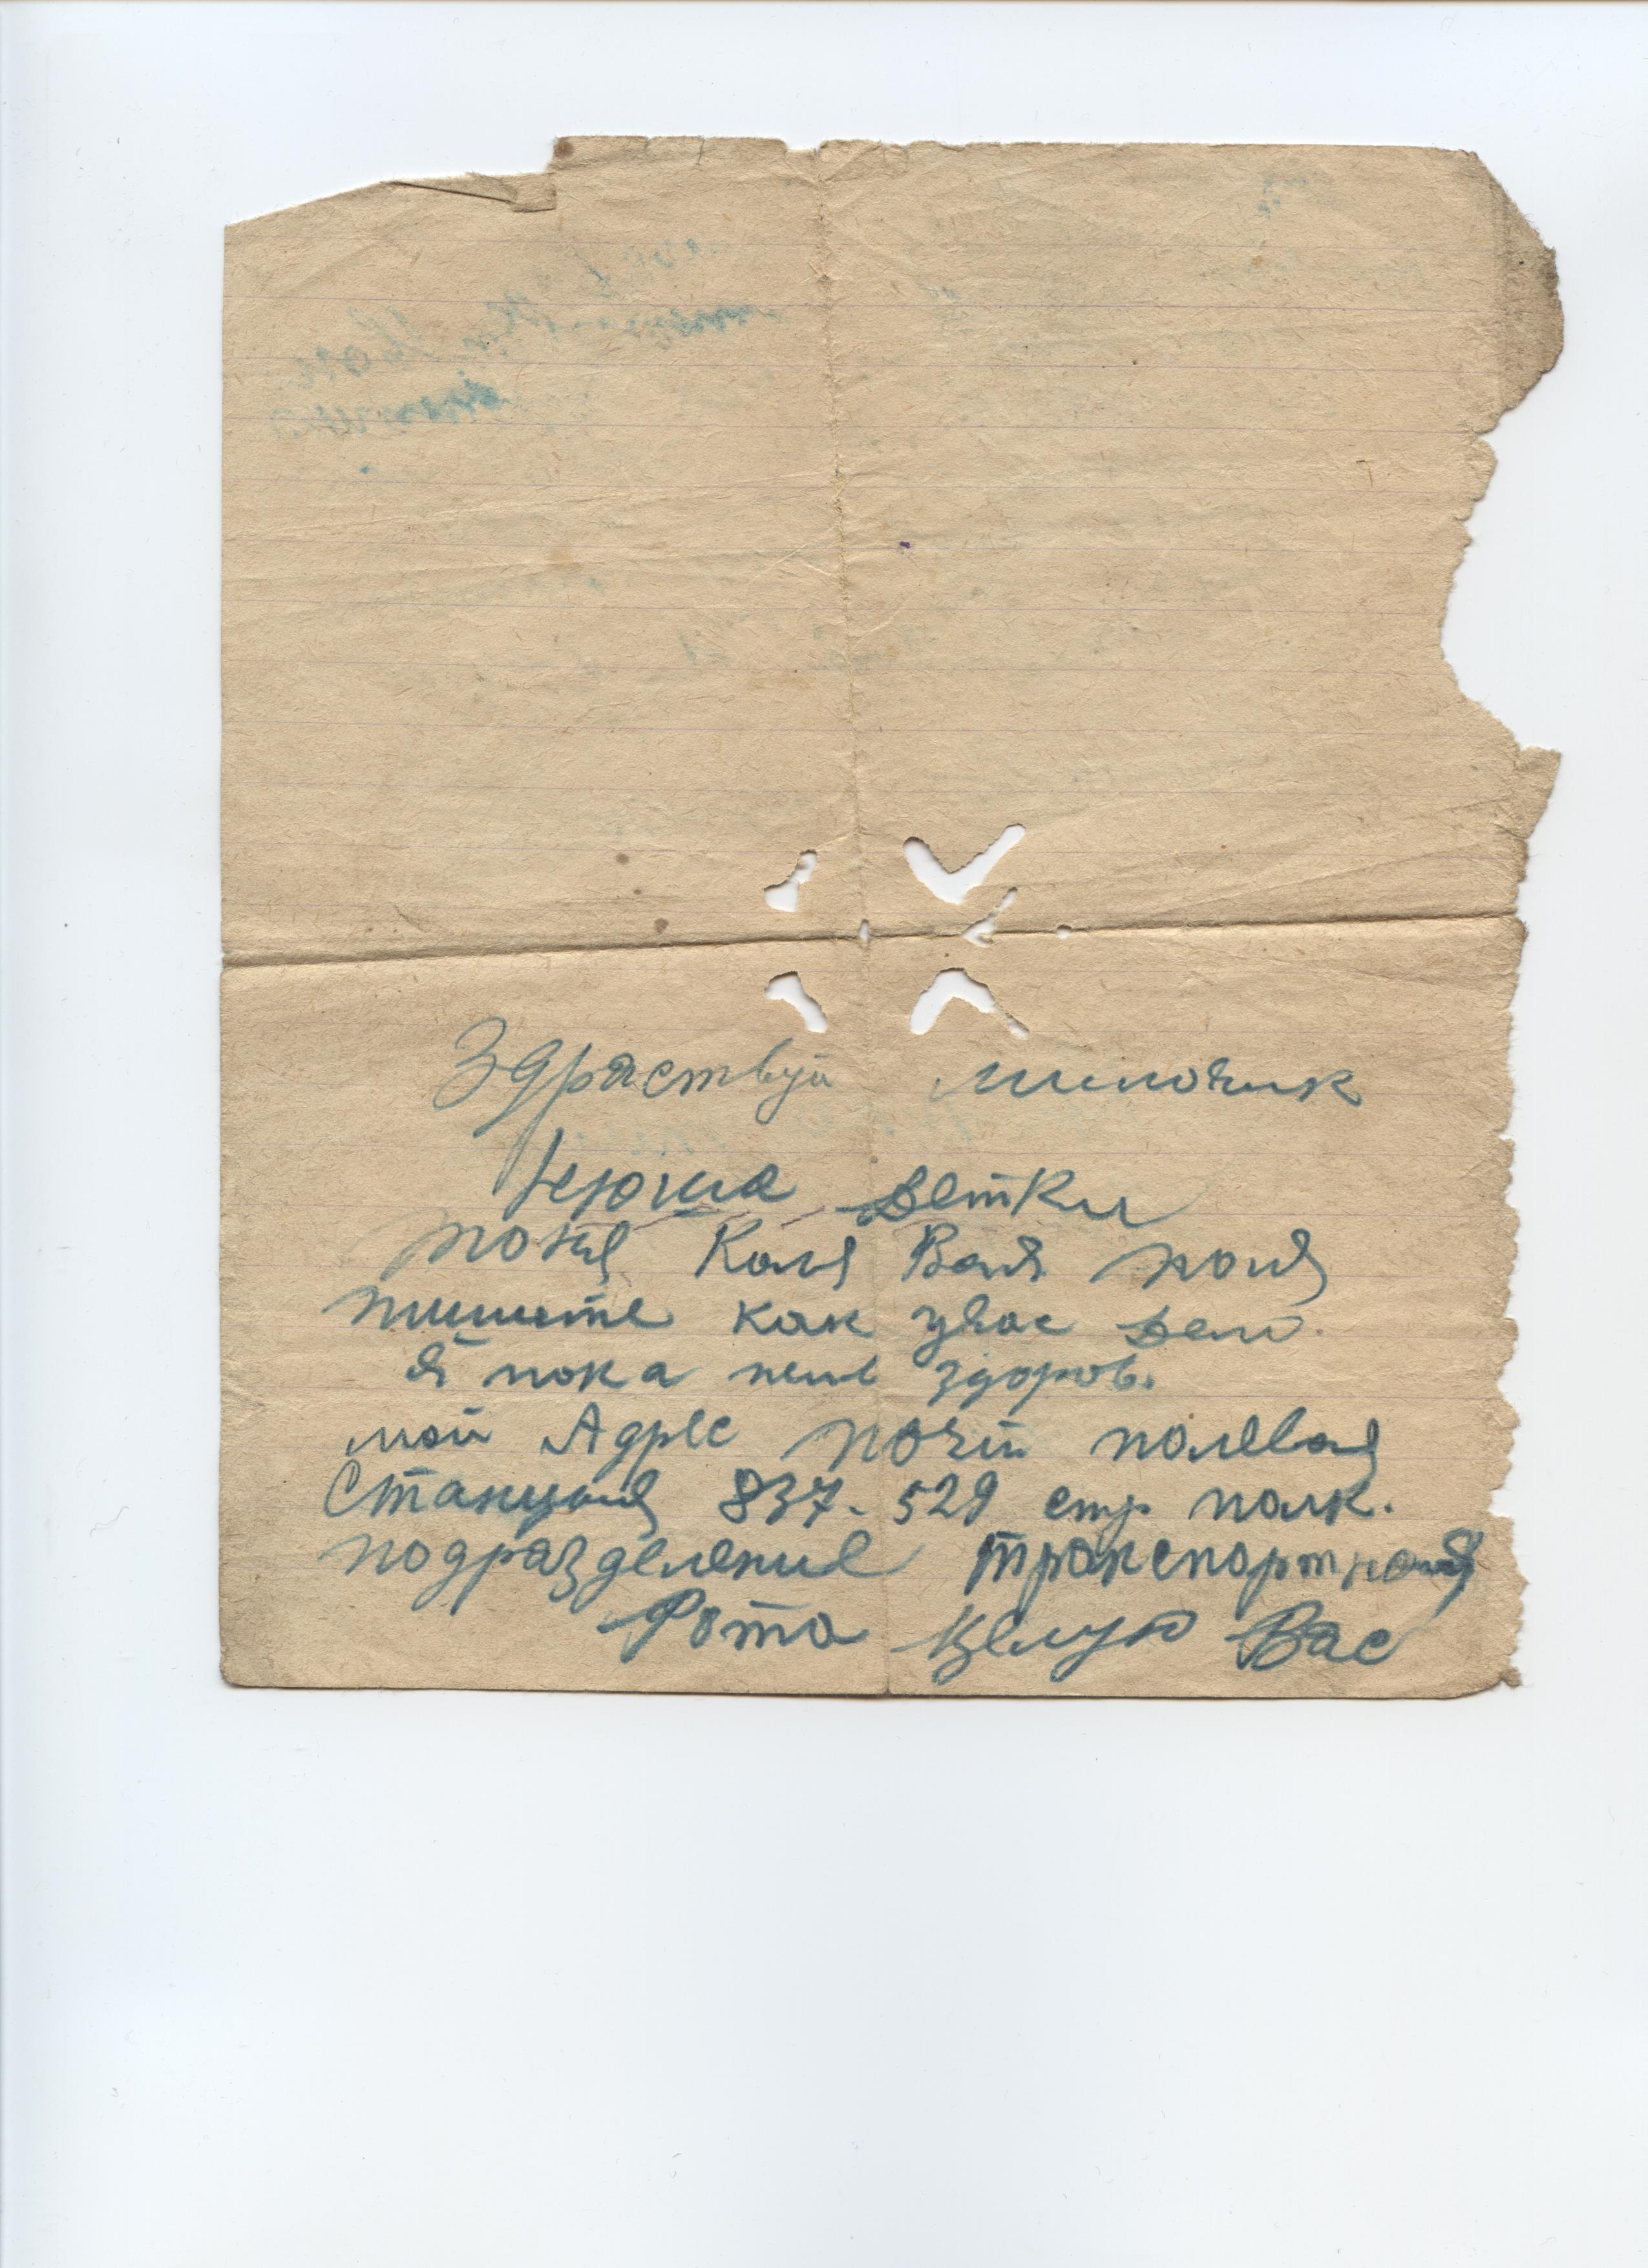 Здраствуй милочик
Нюша Детки
Коля Ваня поля
пишите как увас дело.
Я пока жив здоров.
мой Адрес почт полевая
Станция 837. 529 стр полк.
подразделение транспортная
Рота Целую Вас